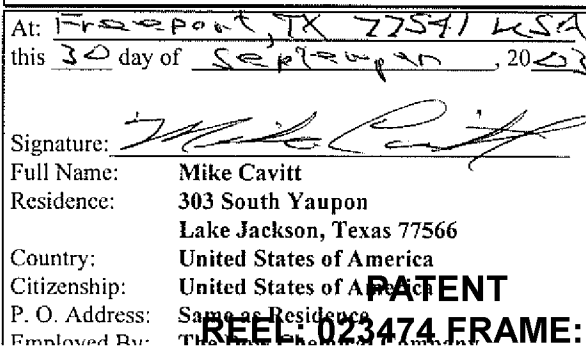 At: Freeport, TX 77541 USA
this 30 day of September, 2003
Signature: Mike Cavitt
Full Name: Mike Cavitt
Residence: 303 South Yaupon
Lake Jackson, Texas 77566
Country: United States of America
Citizenship: United States of America
P. O. Address: Same as Residence
Employed By: The Dow Chemical Company
PATENT
REEL: 023474 FRAME: